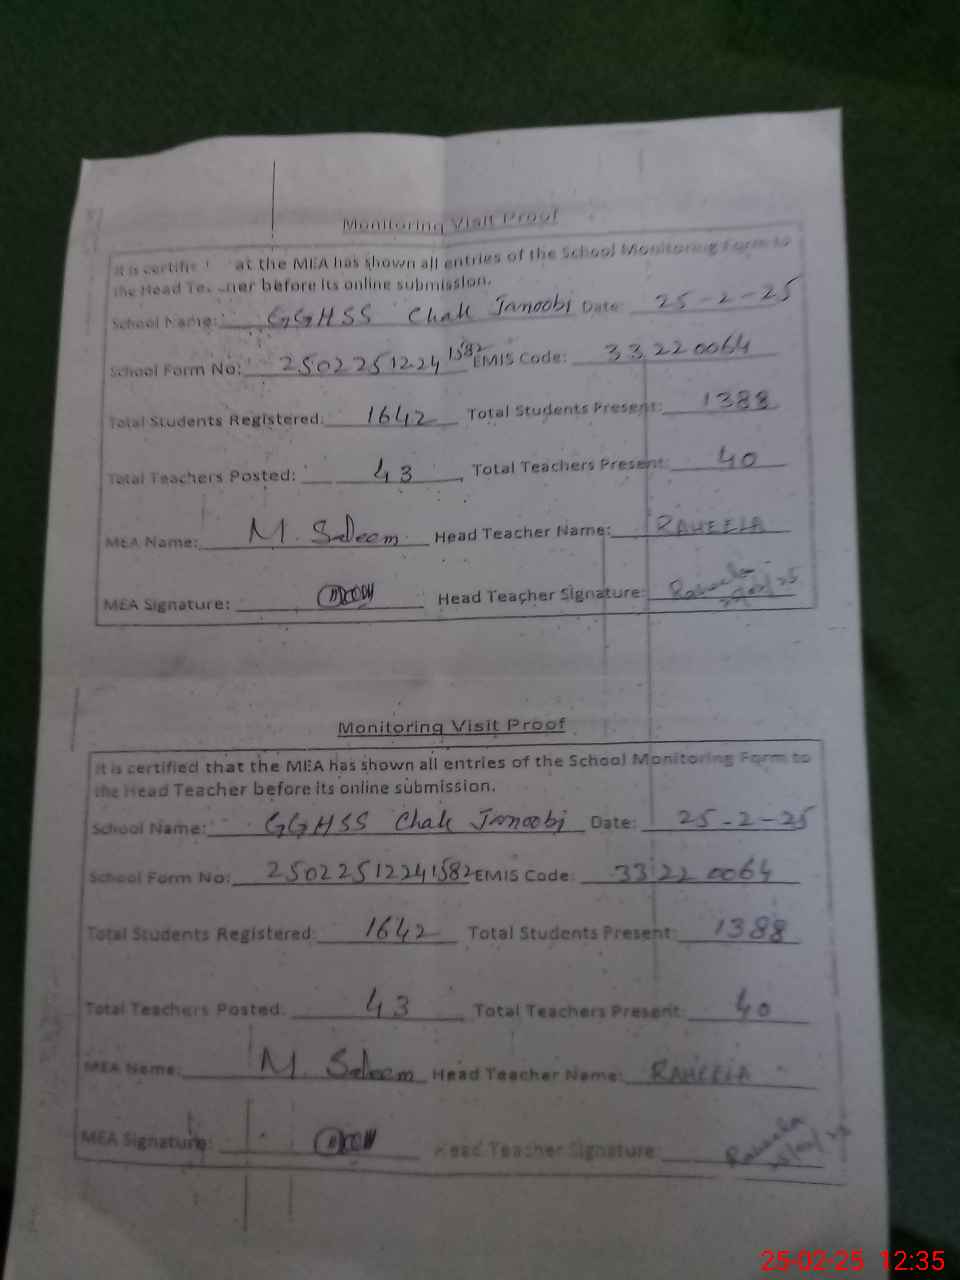 Monitoring Visit Proof
It is certifie at the MEA has shown all entries of the School Monitoring Form to
the Head Te her before its online submission.
School Name: GGHSS Chak Janoobi Date: 25-2-25
School Form No: 25022512241582 EMIS Code: 33220064
Total Students Registered: 1642 Total Students Present: 1388
Total Teachers Posted: 43 Total Teachers Present: 40
MEA Name: M. Saleem Head Teacher Name: RAHEELA
MEA Signature: Head Teacher Signature: Raheela
Monitoring Visit Proof
It is certified that the MEA has shown all entries of the School Monitoring Form to
the Head Teacher before its online submission.
School Name: GGHSS Chak Janoobi Date: 25-2-25
School Form No: 25022512241582 EMIS Code: 33220064
Total Students Registered: 1642 Total Students Present: 1388
Total Teachers Posted: 43 Total Teachers Present: 40
MEA Name: M. Saleem Head Teacher Name: RAHEELA
MEA Signature: Head Teacher Signature: Raheela
25-02-25 12:35